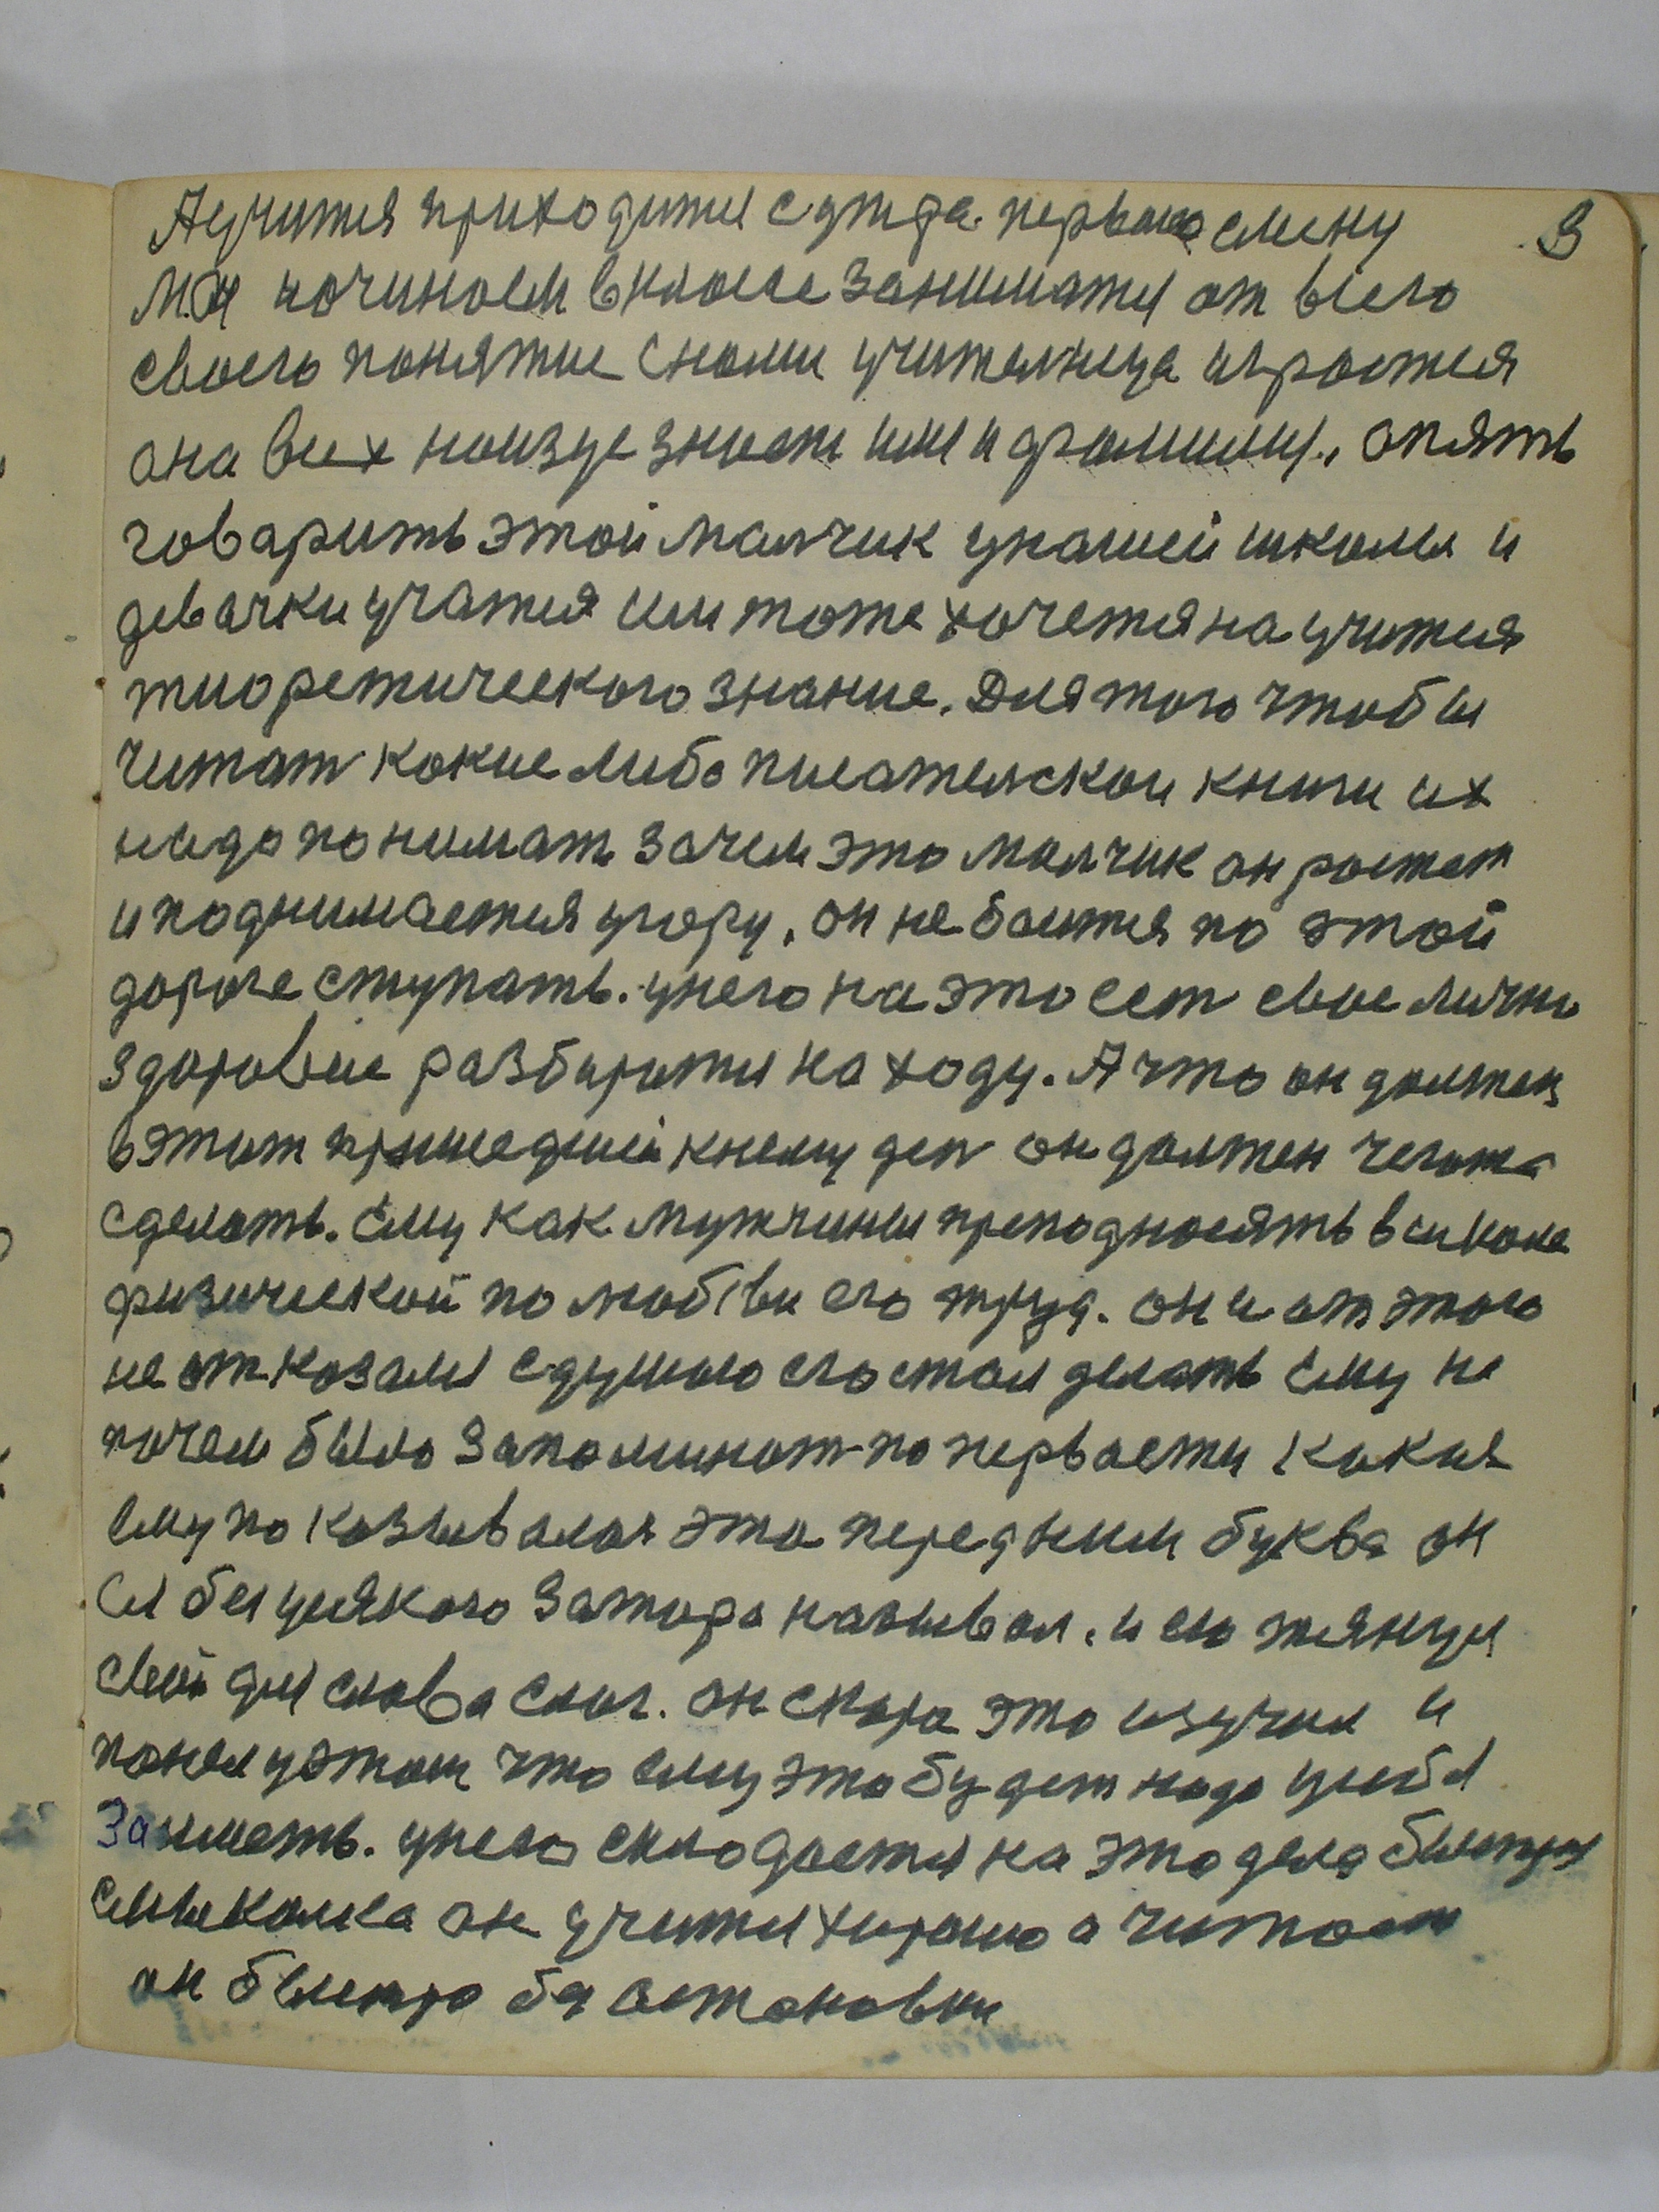 А учится приходится с утра. первою смену 3
мы начинаем в класе заниматся от всего
своего понятие с нами учительница играется
она всех наизус знает имя и фамилию, опять
говарить этой малчик у нашей школы и
девачки учатся им тоже хочетя на учится
тиоретического знание. Для того чтобы
читат какие либо писательскои книги их
надо понимать зачем это малчик он растет
и поднимается угору, он не боится по этой
дороге ступать. у него на это ест свое лично
здоровие разбиратся на ходу. А что он должен
в этот пришедший к нему ден он должен чегота
сделать. ему как мужчины преподносять в школе
физической по любви его труд. он и от этого
не отказался с душою его стал делать ему не
почем было запоминат по первасти какая
ему показывалая эта перед ним буква он
ея без усякого затора называл. и ею тянул
свой для слова слог. он скора это изучил и
понял у этом что ему это будет надо у себя
заиметь. у него складается на это дела быстрая
смыкалка он учится хорошо а читает
он быстро без астановки